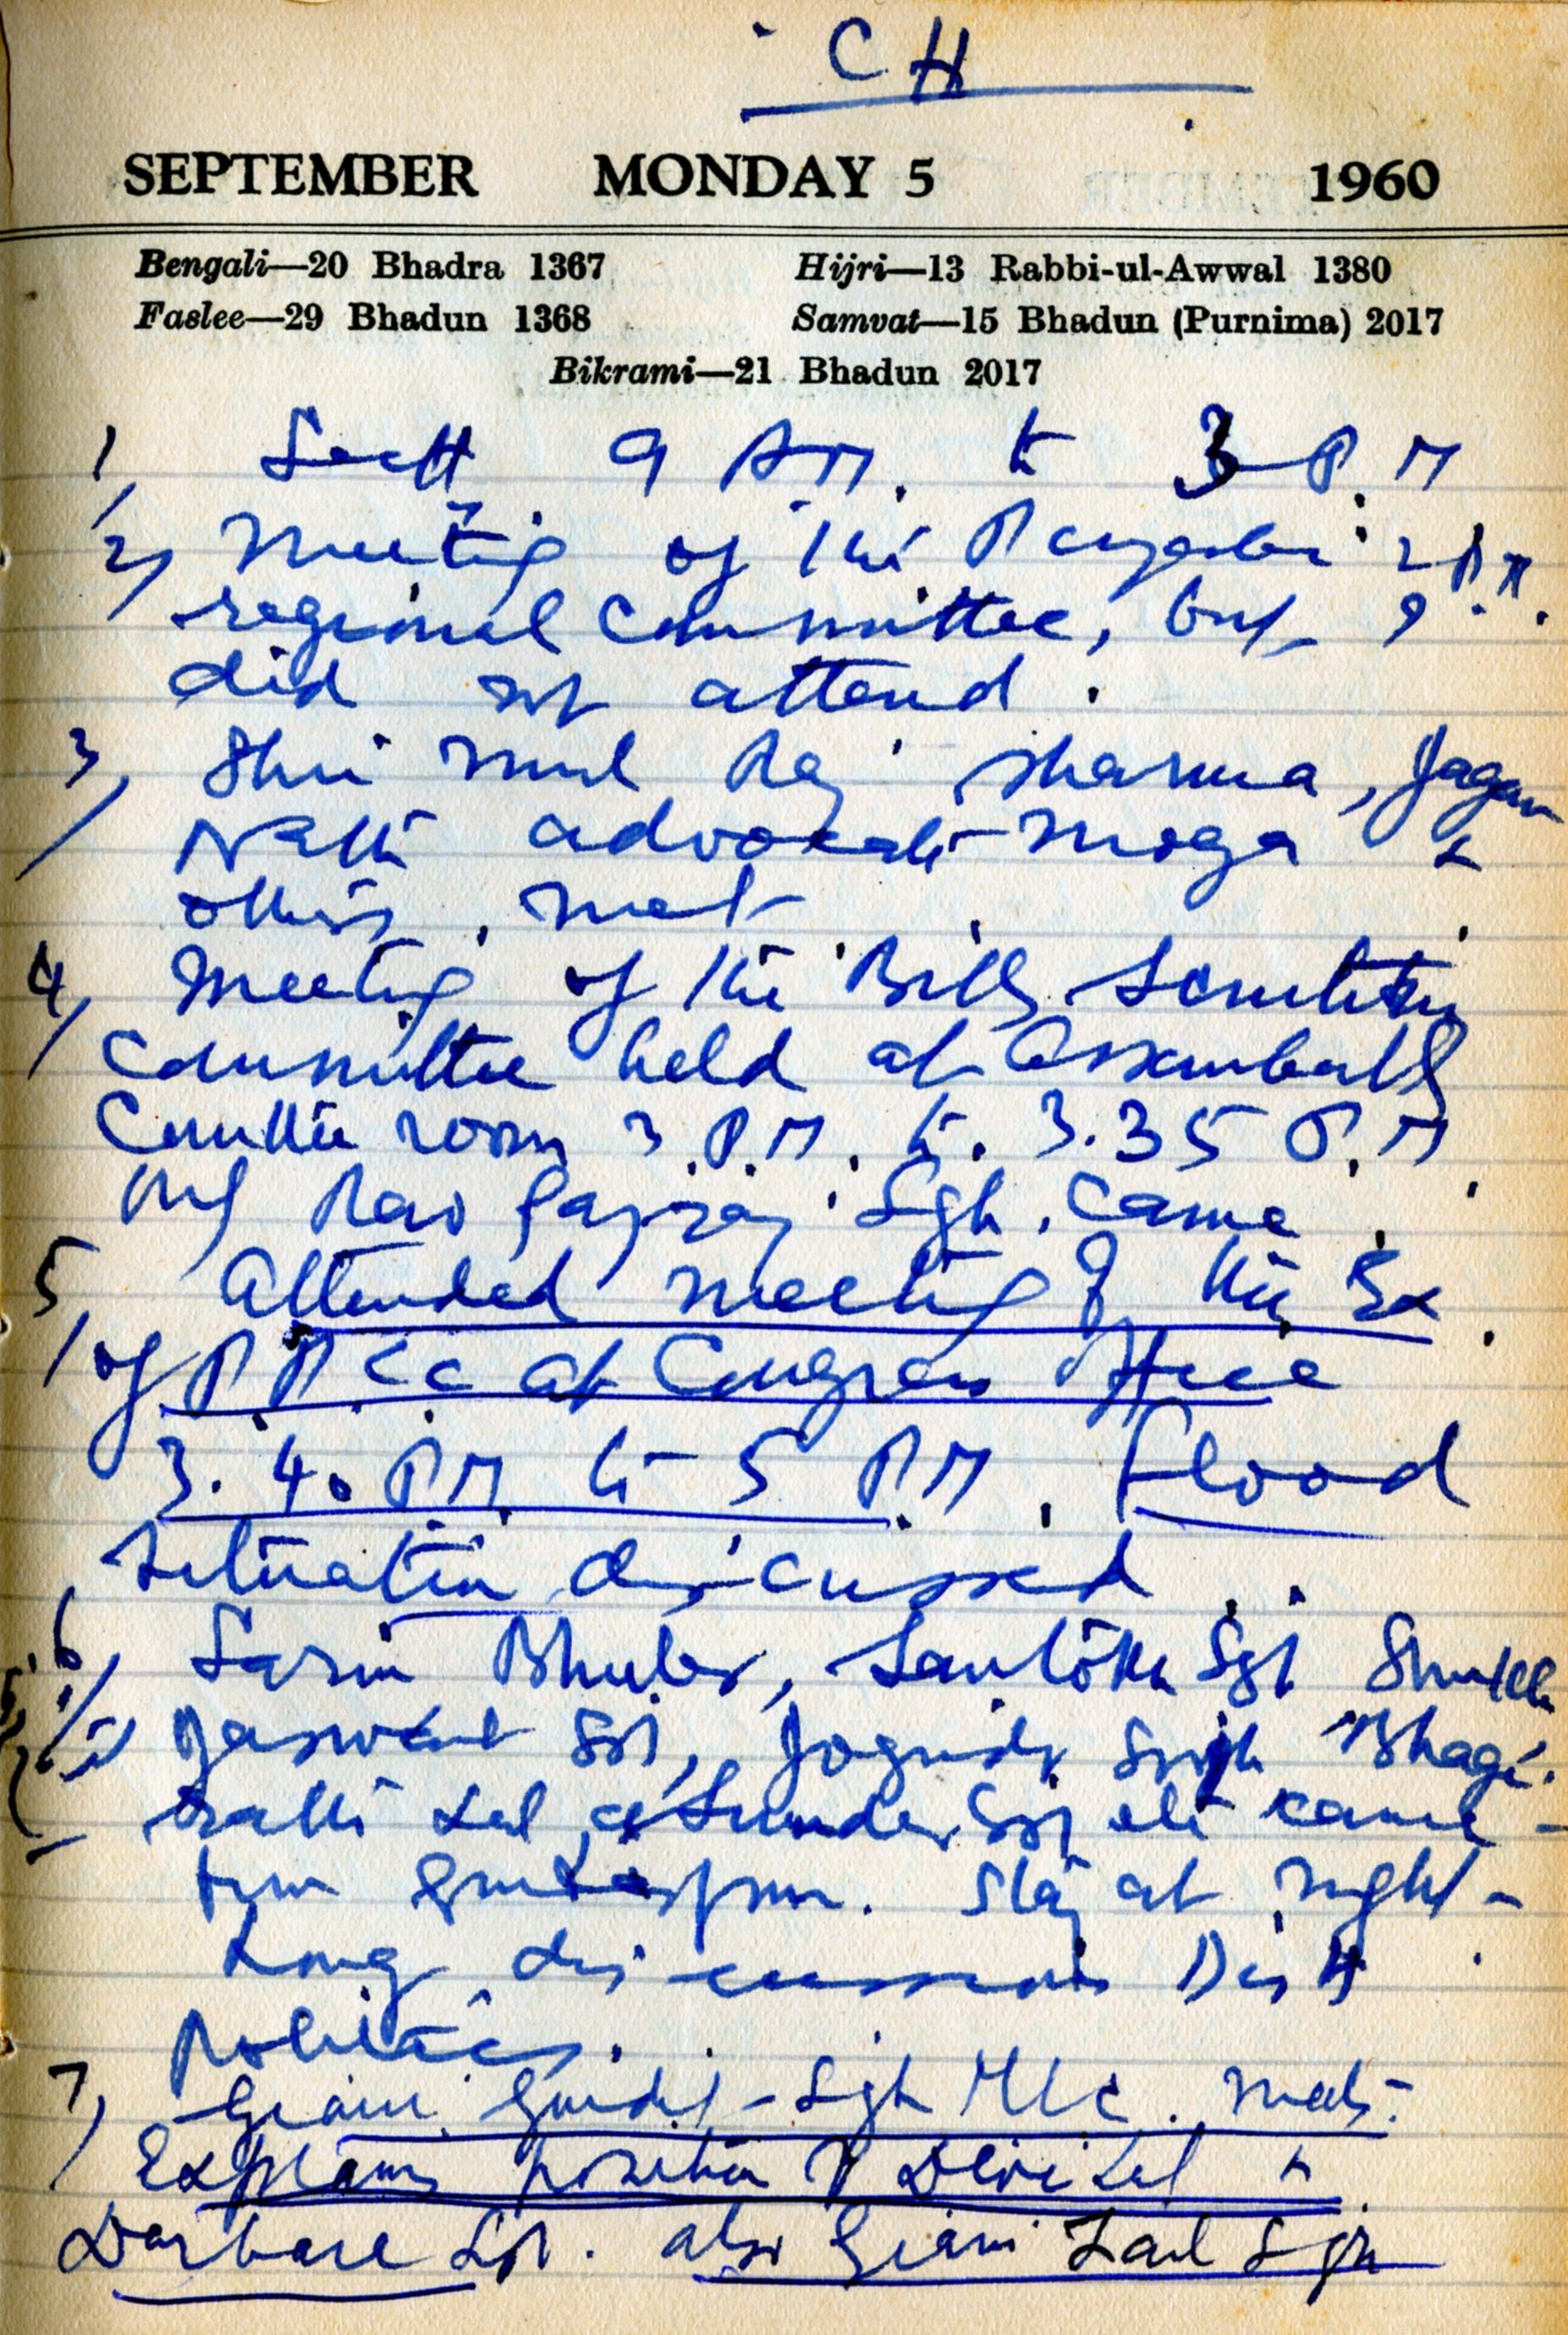 CH
SEPTEMBER MONDAY 5 1960
Bengali—20 Bhadra 1367 Hijri—13 Rabbi-ul-Awwal 1380
Faslee—29 Bhadun 1368 Samvat—15 Bhadun (Purnima) 2017
Bikrami—21 Bhadun 2017
1, Sectt 9 A.M. to 3 P.M
2, Meeting of the 2 P.M.
regional Committee, but I
did not attend.
3, Shri Mul Raj Sharma, Jagan
Nath advocate Moga &
others met
4, Meeting of the Bills Scrutiny
Committee held at Assembally
Comttee room 3 P.M. to 3.35 P.M.
Only Rao Gajraj Sgh. came.
5, Attended meeting of the Ex.
of P.P.C.C at Congress Office
3.40 P.M. to 5 P.M. Flood
situation discussed.
6, Santokh Sgh
Jaswant Sgh, Joginder Singh Bhagi-
rath Lal, & Sunder Sgh etc came
from Gurdaspur. Stay at night-
Long discussions Distt
politics.
7, Giani Sgh MLC. meets.
Explains position of Devi Lal &
Darbara Sgh. also Giani Zail Sgh